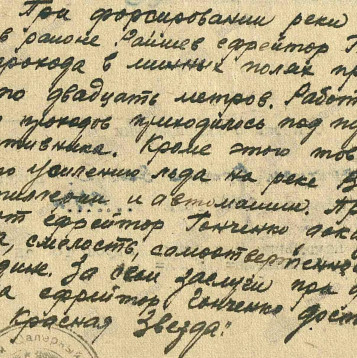 При форсировании реки
в районе Райцев ефрейтор Г
прохода в минных полях пр
го двадцать метров. Работ
проходов приходилось под по
тивника. Кроме этого тов
по усилению льда на реке
тиллерии и автомашин. Пр
от ефрейтор Гонченко дока
а, смелость, самоотверженно
дине. За свои заслуги при ф
а ефрейтор Гонченко дост
Красная Звезда".